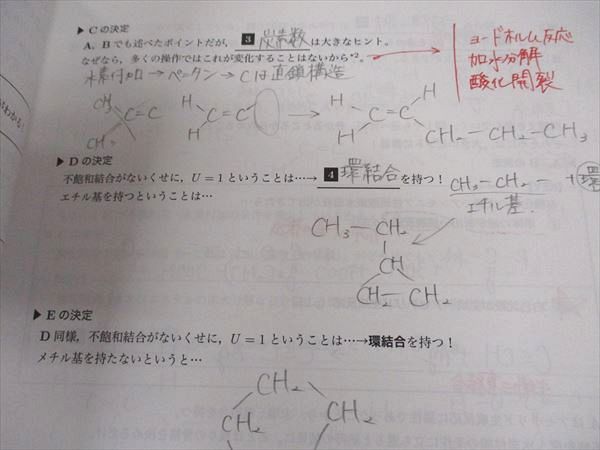 ▶ C の決定
A，B でも述べたポイントだが， 3 炭素数 は大きなヒント。
なぜなら，多くの操作ではこれが変化することはないから*2。
ヨードホルム反応
加水分解
酸化開裂
水素付加→ペンタン→Cは直鎖構造
CH3 C=C
CH3
H C=C
H
→
H C=C H
H CH2-CH2-CH3
▶ D の決定
不飽和結合がないくせに，U = 1 ということは…→ 4 環結合 を持つ！
エチル基を持つということは…
CH3-CH2- +環
エチル基.
CH3-CH2
CH
CH2-CH2
▶ E の決定
D 同様，不飽和結合がないくせに，U = 1 ということは…→環結合を持つ！
メチル基を持たないというと…
CH2
CH2 CH2